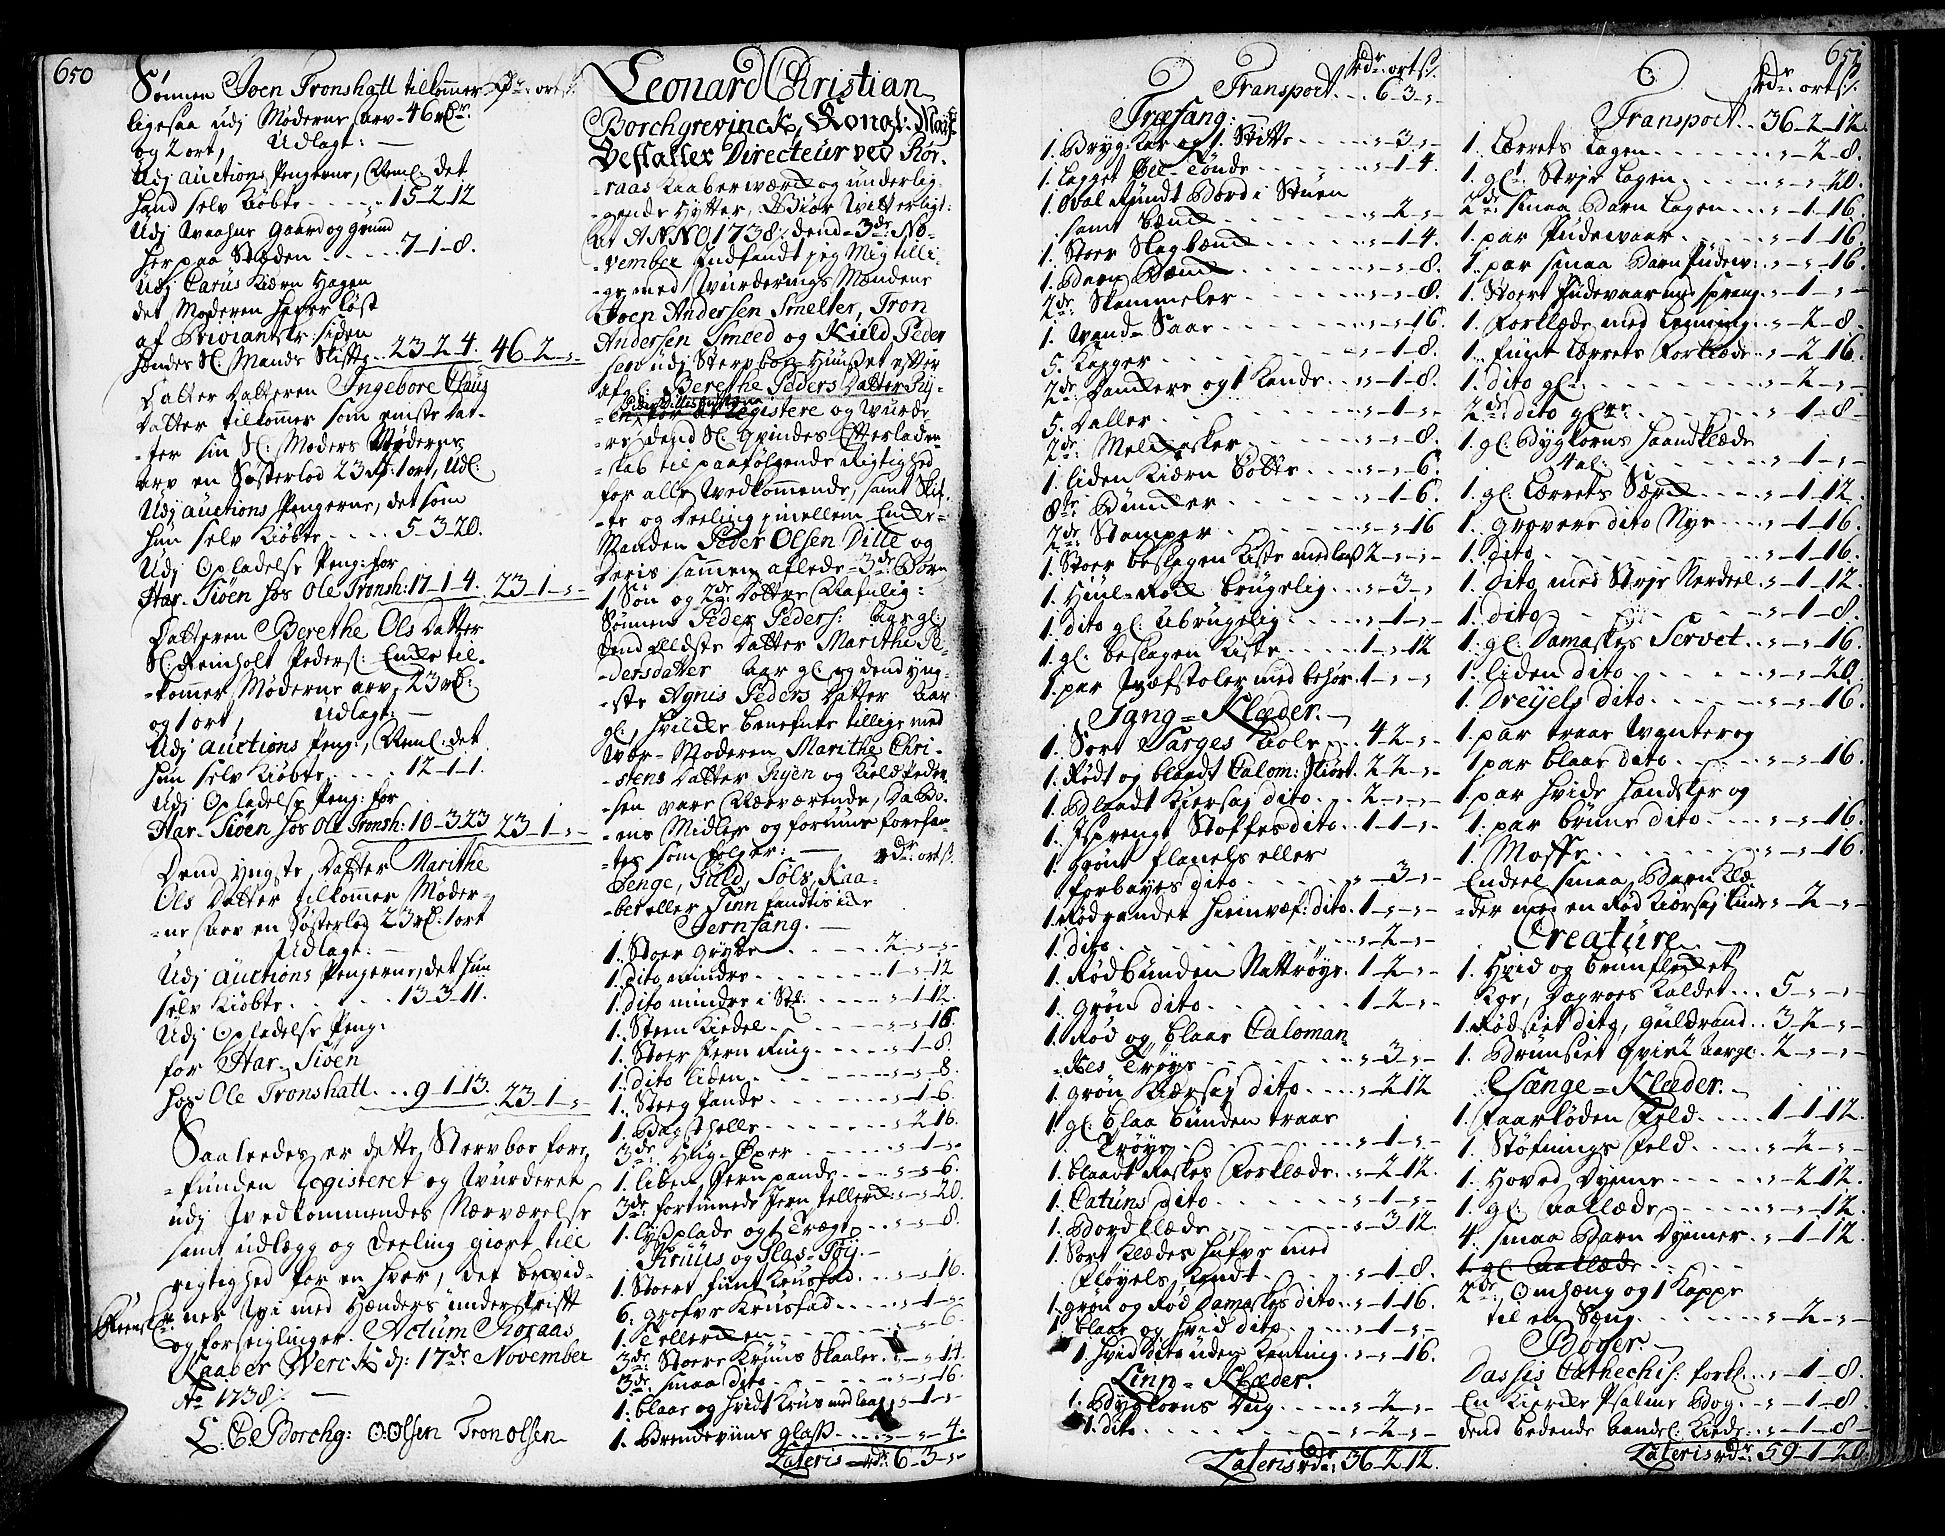 650
Sönnen Joen Tronshatt tilkommer Rdr: ort ß:
ligesaa udj Moderne Arv - 46 rdr:
og 2 ort, Udlagt: —
Udj auctions Pengerne, Reml: det
hand selv kiöbte - - - - - 15-2-12
Udj Waahns Gaard og Grund
her paa Stæden - - - - - 7-1-8.
Udj Carus Kiærn Hagen
det Moderen hever löst
af Proviantskr: siden
hendes Sl: Mands Skifte . . 23-2-4. 46-2-,-
Datter Datteren Ingebore Claus
Datter tilkommer som eniste Dat-
-ter sin Sl: Moders Möderne
arv en Sösterlod 23 rdr: 1 ort, Udl:
Udj auctions Pengerne, det som
hun selv kiöbte - - - - 5-3-20.
Udj Opladelse Peng: for
Har-Siöen hos Ole Tronsh: 17-1-4. 23-1-,-
Datteren Berethe Ols Datter
Sl: Reinholt Peders: Encke til-
-kommer Möderne arv, 23 rd:
og 1 ort, Udlagt: —
Udj auctions Peng:, Reml: det
hun selv kiöbte - - - - 12-1-1.
Udj Opladelse Peng: for
Har-Siöen hos Ole Tronsh: 10-3-23 23-1-,-
Dend yngste Datter Marithe
Ols Datter tilkommer Möder-
-ne arv en Sösterlod 23 rd: 1 ort
Udlagt: —
Udj auctions Pengerne, det hun
selv kiöbte. - - - - - 13-3-11.
Udj Opladelse Peng:
for Har-Siöen
hos Ole Tronshatt. . . . 9-1-13. 23-1-,-
Saaledes er dette Sterfboe fore-
-funden Registeret og Wurderet
udj Wedkommendes Nærværelse
samt udlægg og Deeling giort till
rigtighed for en hver, det bevid-
-ner Wi med Hænders underskrifft
og forseiglinger. Actum Röraas
Kaaber Werck d: 17de November
Ao 1738 —
L. C. Borchg: O:Olsen Tron Olsen
Leonard Christian
Borchgrevinck, Kong: Mayt
Bestalter Directeur ved Rör-
-raas Kaaberværck og underlig-
-gende Hytter, Giör Witterligt:
At ANNO 1738, dend 3de No-
-vember Indfandt jeg Mig tilli-
-ge med Wurderings Mændene
Joen Andersen Smelter, Tron
Andersen Smeed og Kield Peder
sen udj Sterfboe Huuset efter
afg: Berethe Peders Datter Ry-
-en, for at Registere og Wurde-
-re, dend Sl: Qvindes Efterladen-
-skab til paafölgende Rigtighed
for alle Wedkommende, samt Skif-
-te og Deeling imellem Encke-
Manden Peder Olsen Ditte og
Deris sammen aflede 3de Börn
1 Sön og 2de Döttre Nafnlig:
Sönnen Peder Peders: Aar gl:
Dend Eldste Datter Marithe Pe-
-dersdatter aar gl: og dend yng-
-ste Agnis Peders Datter Aar
gl:, Hvilcke benefnte tillige med
Vær-Moderen Marithe Chri-
-stens Datter Ryen og Kield Peder-
sen vare Nærværende, Da Bo-
-ens Midler og formue forefan-
-tes som fölger: — rdr: ort ß:
Penge, Guld, Sölf, Kaa-
-ber eller Tinn fandtis icke
Jernfang. —
1. Stoer Gryde - - - - - 2-,-,-
1. Dito mindre - - - - - 1-,-12
1. Dito mindre i St: - - - - ,-1-12.
1. Steen Kiedel - - - - - ,-,-16.
1. Stoer Jern Ring - - - - ,-1-8.
1. Dito liden - - - - - ,-,-8.
1. Steeg Pande - - - - - ,-1-6.
1. Bag Helle - - - - - ,-2-16.
3de Hug-Öxer - - - - - ,-1-,-
1. liden Jern pande - - - ,-,-6.
3de fortinnede Jern Tellercker ,-,-20.
1. Lysplade og 1 Trægt - - - ,-,-8.
Kruus og Glas-Töy. —
1. Stoert fiint Krusfad - - - ,-,-16.
6. Grofve Krusfad - - - - ,-1-,-
1. Tellercken - - - - - ,-,-6.
3de Stoere Kruus Skaaler - - ,-,-14.
3de smaa dito - - - - ,-,-16.
1. blaae og Hvidt Krus med laag ,-1-,-
1. Brendeviins Glass - - - ,-,-4.
Lateris rdr: 6-3-,-
rdr: ort ß:
Transport. . . 6-3-,-
Træfang: —
1. Bryg-Kar og 1 Bötte - - - - ,-3-,-
1. Lagget Öll-Tönde - - - - ,-1-4.
1. Oval Rundt Bord i Stuen
samt Bænck - - - - - ,-2-,-
1. Stoer Slagbænck - - - - ,-1-4.
1. Barn Bænck - - - - - ,-,-8.
2de Skammeler - - - - - ,-,-8.
1. Wand-Saae - - - - - ,-,-16.
5. Kagger - - - - - ,-1-8.
2de Dunckere og 1 Kande - - ,-1-8.
5. Daller - - - - - ,-1-,-
2de Melckasker - - - - - ,-,-8.
1. liden Kiærn Bötte - - - - ,-,-6.
8te Bimmer - - - - - ,-1-6.
2de Stamper - - - - - ,-,-16
1. Stoer beslagen Kiste med laas 2-,-,-
1. Hiul-Rock brugelig - - - ,-3-,-
1. dito gl: Ubrugelig - - - - ,-1-,-
1. gl: beslagen Kiste - - - - 1-,-12
1. par Wæfstoler med behör. 1-,-,-
Gang-Klæder. —
1. Sort Sarges Kole - - - - 4-2-,-
1. Rödt og blandt Calom: Skiört. 2-2-,-
1. Blaadt Kiersaj dito - - - 2-,-,-
1. Isprengt Stoffes dito - - 1-1-,-
1. Grönt flanels eller
forbayes dito - - - - - ,-3-,-
1. Rödrandet hiemvæf: dito. 1-,-,-
1. dito - - - - - ,-2-,-
1. Rödbunden Nattröye. 1-2-,-
1. Grön dito - - - - - 1-2-,-
1. Röd og blaae Caloman-
-kes Tröye - - - - - ,-3-,-
1. Grön Kiersaj dito - - - ,-2-12
1. gl: blaa bunden traae
Tröye - - - - - ,-1-,-
1. blaadt Raskes Forklæde - - ,-2-12.
1. Catuns dito - - - - - ,-1-,-
1. Bordklæde - - - - - ,-3-12.
1. Sort Klædes Hufve med
Flöyels Kandt - - - - ,-1-8.
1. Grön og Röd Damaskes dito - - ,-1-16.
1. blaae og Hvid dito - - - ,-1-,-
1. Hvid dito uden Kanting - - ,-,-16.
Linn-Klæder.
1. Bygkorns Dug - - - - ,-2-,-
1. dito - - - - - ,-2-,-
Lateris rdr: 36-2-12.
651
rdr: ort ß:
Transport. . 36-2-12.
1. Lærrets Lagen - - - - ,-2-8.
1. gl: Strie Lagen - - - - ,-,-20.
2de smaa Barn Lagen - - ,-1-16.
1. par Pudevaar - - - - ,-1-16.
1. par smaa Barn Pudev: - - ,-,-16.
1. Stoert Pudevaar med sprang. ,-1-,-
1. Forklæde med Bogning. ,-2-8.
1. fiint Lærrets Forklæde. ,-2-16.
1. dito gl: - - - - - ,-2-,-
2de dito gl: - - - - - ,-1-8-
1. gl: Bygkorns Haandklæde
4 al: - - - - - ,-1-,-
1. gl: Lærrets Særck - - - ,-1-12.
1. Grovere dito Nye - - - ,-1-16.
1. dito - - - - - ,-1-16.
1. dito med Strie Nerdeel ,-1-12.
1. dito - - - - - ,-1-8.
1. gl: Damaskes Servet - - ,-,-16.
1. liden dito - - - - - ,-,-20
1. Dreyels dito - - - - - ,-,-16.
1. par traae Wanter og
1 par blaae dito - - - - ,-,-16.
1. par Hvide Handsker og
1. par brune dito - - - - ,-,-16.
1. Moffe - - - - - ,-,-16.
Endeel smaa Barn Klæ-
-der med en Röd Kiersaj Kiude ,-2-,-
Creature. —
1. Hvid og brunflecket
Koe, Dagroes Kaldet . . . 5-,-,-
1. Rödsiet dito, Guldrand . . 3-2-,-
1. Brunsiet Qvie 2 Aar gl: . . 2-,-,-
Sænge-Klæder. —
1. Faarloden Feld - - - - 1-1-12.
1. Stöfnings Feld - - - - ,-2-,-
1. Hoved Dyne - - - - ,-2-12.
1. gl: Aaklæde - - - - ,-,-12.
4. smaa Barn Dyner - - ,-1-12.
1. gl. Aaklæde - - - -
2de Omhæng og 1 Kappe
til en Seng - - - - - ,-2-,-
Böger. —
Dassis Cathechis: forkl. . . ,-1-8.
En Kiercke Psalme Bog - - ,-1-8.
dend bedende Aandel: Kiede: ,-1-8-
Lateris rdr: 59-1-20.